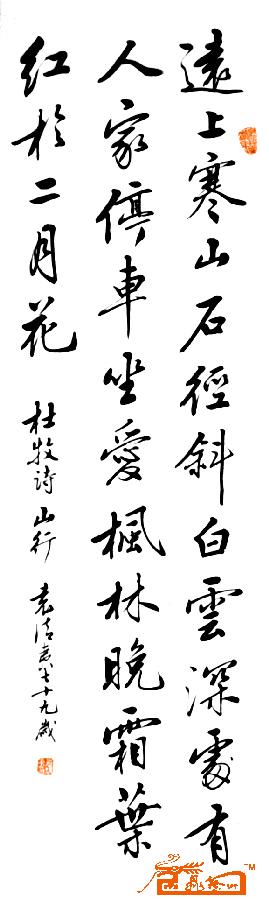 遠上寒山石徑斜白雲深處有
人家停車坐愛楓林晚霜葉
紅於二月花
杜牧詩山行